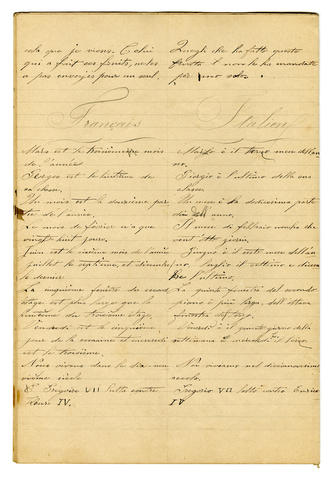 cela que je viens. Celui
qui a fait ces fruits, ne les
a pas envoyés pour un seul.
Quegli che ha fatto questo
frutto, non le ha mandate
per uno solo
Français
Italien
Mars est le troisième mois
de l'année
est le huitième de
sa classe.
Un mois est la douzième par-
tie de l'année.
Le mois de février n'a que
vingt huit jours.
Juin est le sixième mois de l'année
juillet le septième, et décembre
le dernier
La cinquième fenêtre du second
étage est plus large que la
huitième du troisième étage.
Vendredi est le cinquième
jour de la semaine et mercredi
est le troisième.
Nous vivons dans le dix-neu
vième siècle
Grégoire VII lutta contre
Henri IV.
Marzo è il terzo mese dell'an
no.
Giorgio è l'ultimo della sua
classe
Un mese è la dodicesima parte
dell'anno.
Il mese di febbraio non ha che
vent'otto giorni.
Giugno è il sesto mese dell'an
no, luglio il settimo e dicem
bre l'ultimo.
La quinta finestra del secondo
piano è più larga dell'ottava
finestra del terzo.
Venerdì è il quinto giorno della
settimana e mercoledì il terzo.
Noi viviamo nel diciannovesimo
secolo.
Gregorio VII lottò contro Enrico
IV